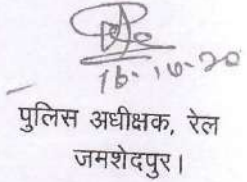 16.10.20
पुलिस अधीक्षक, रेल
जमशेदपुर।